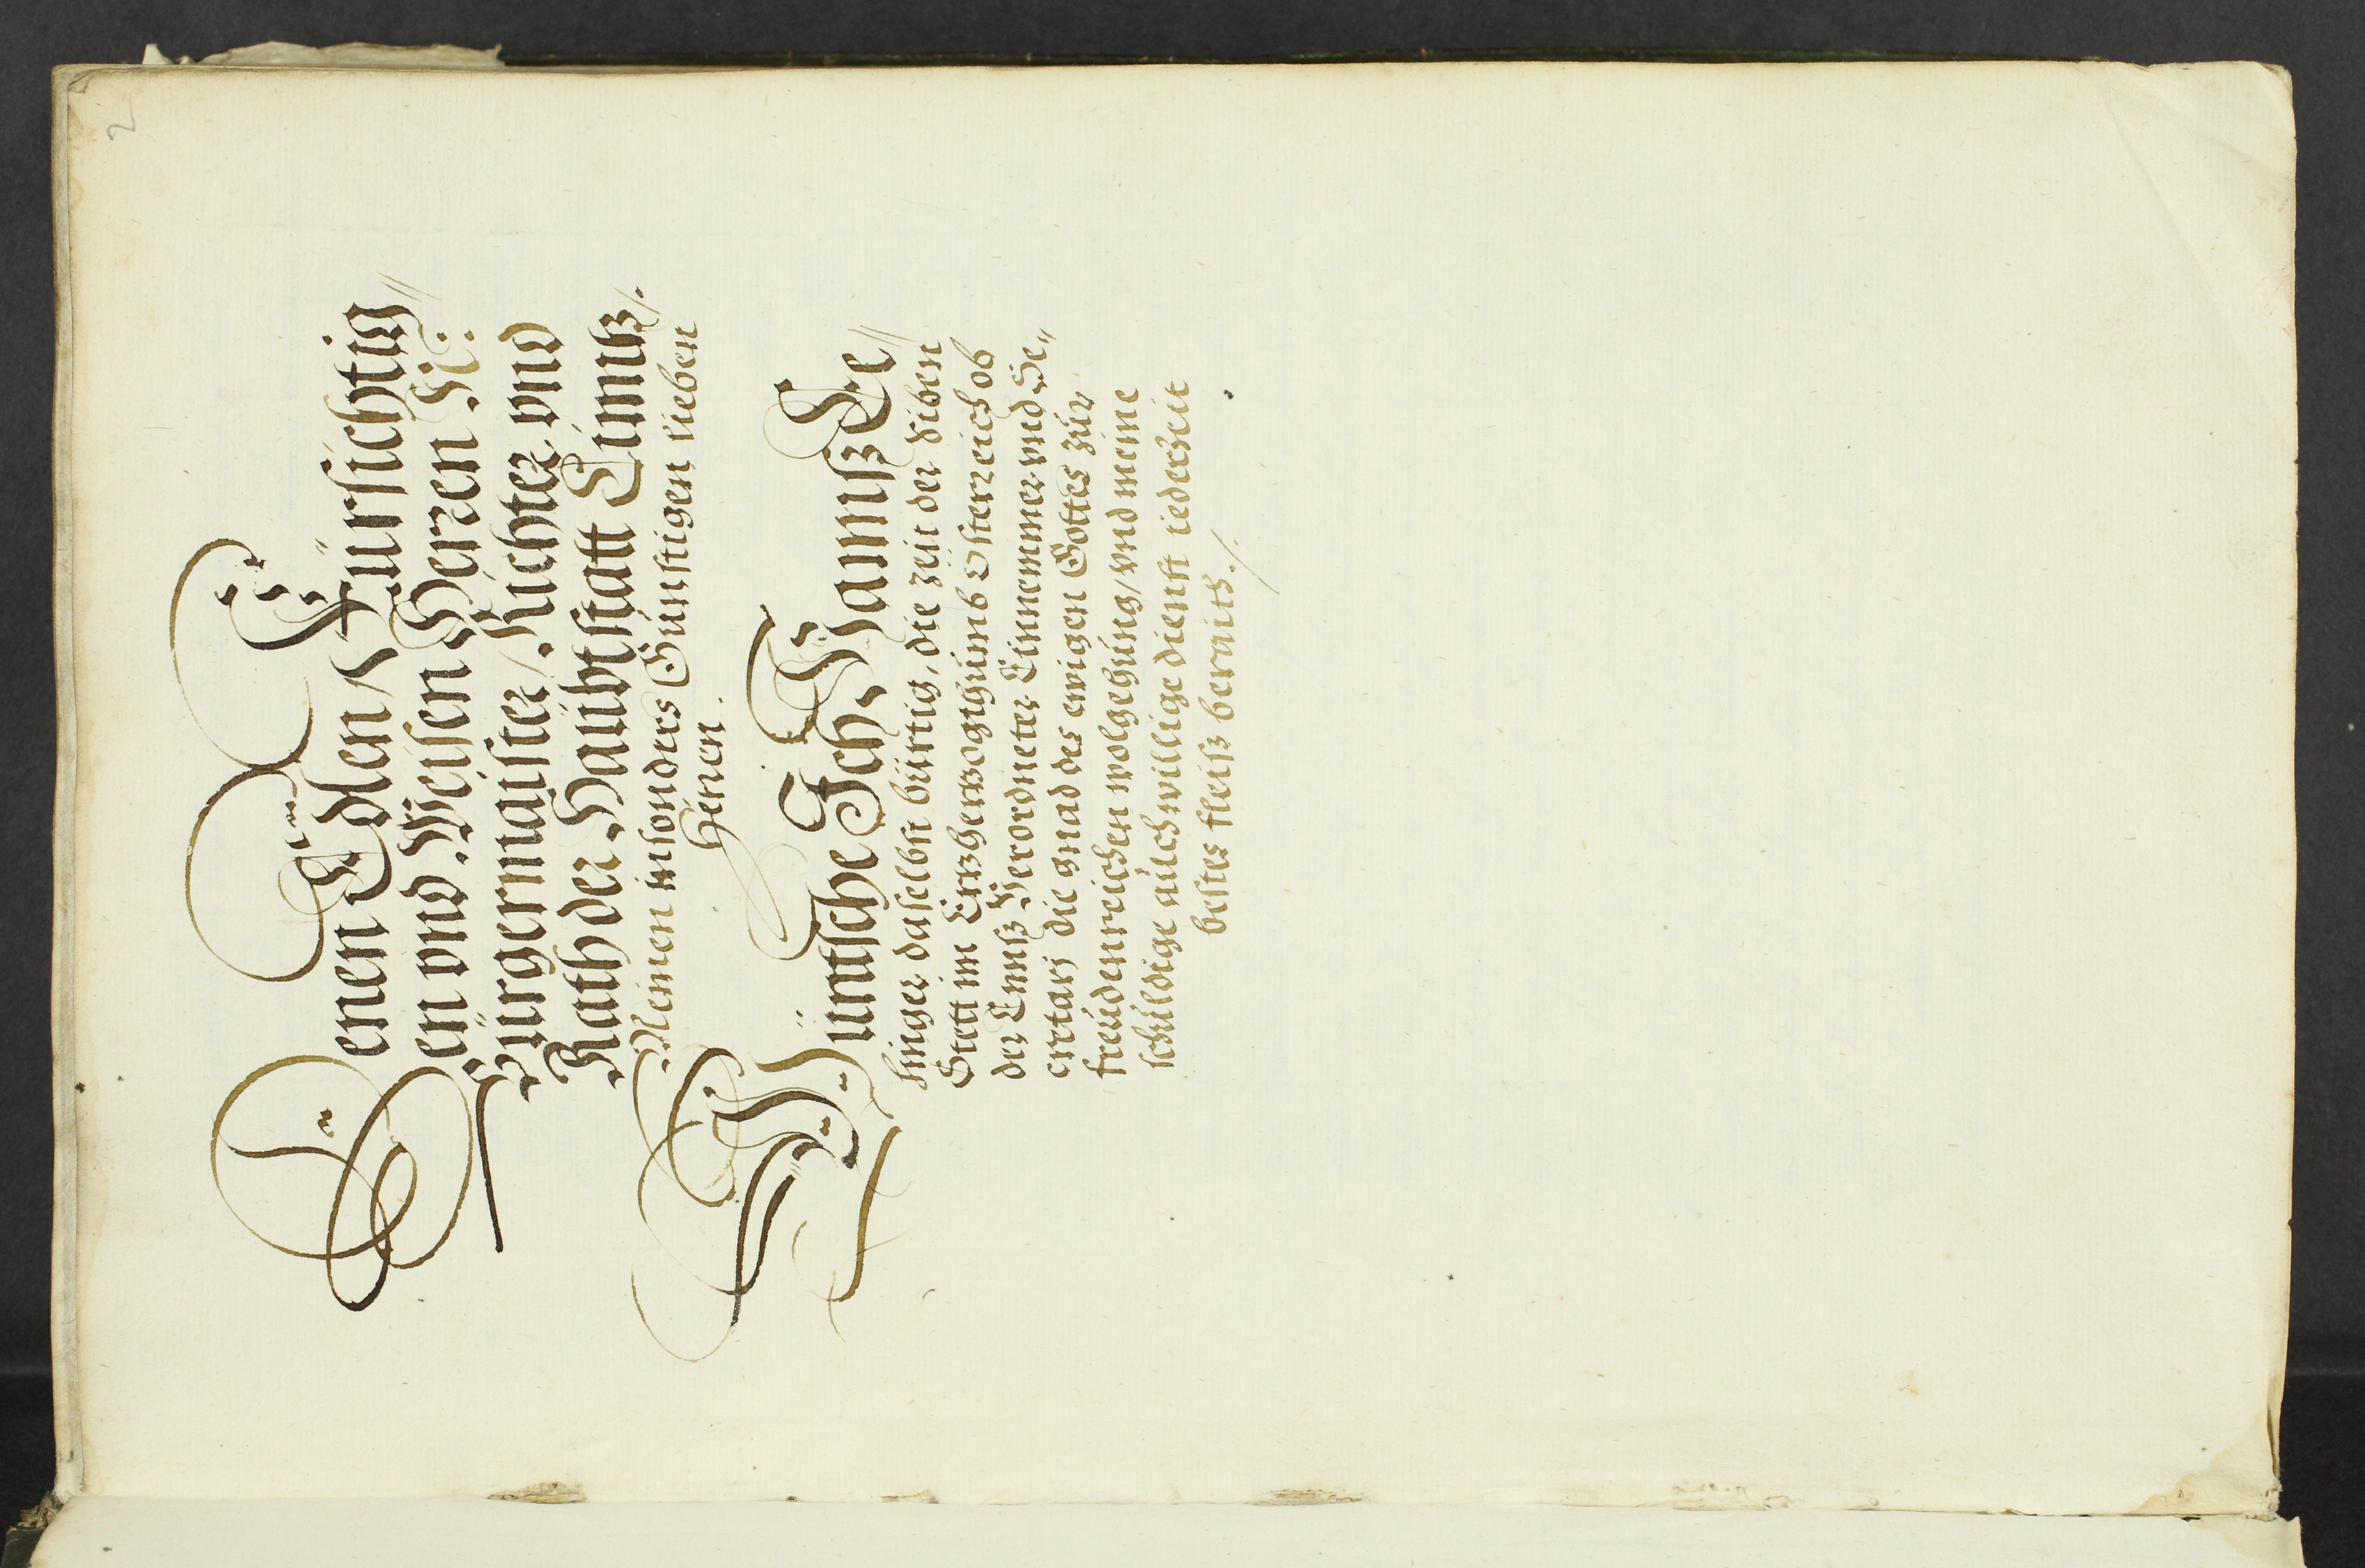 2
Denen Edlen / Fürsichtig//
en vnd Weisen Herren N:
Burgermaister / Richter vnd
Rath der Haubtstatt Linntz /.
Meinen insonders Günstigen lieben
Herren.
Wüntsche Ich, Hannß Le//
singer daselbst bürtig, die zeit der siben
Stett im Ertzhertzogthumb Osterreich ob
der Ennß Verordneter Einnemmer vnd Se„
cretarj die gnad des ewigen Gottes zur
freudenreichen wolgehung / vnd meine
schuldige auch willige dienst iederzeit
bestes fleiß beraits. /.